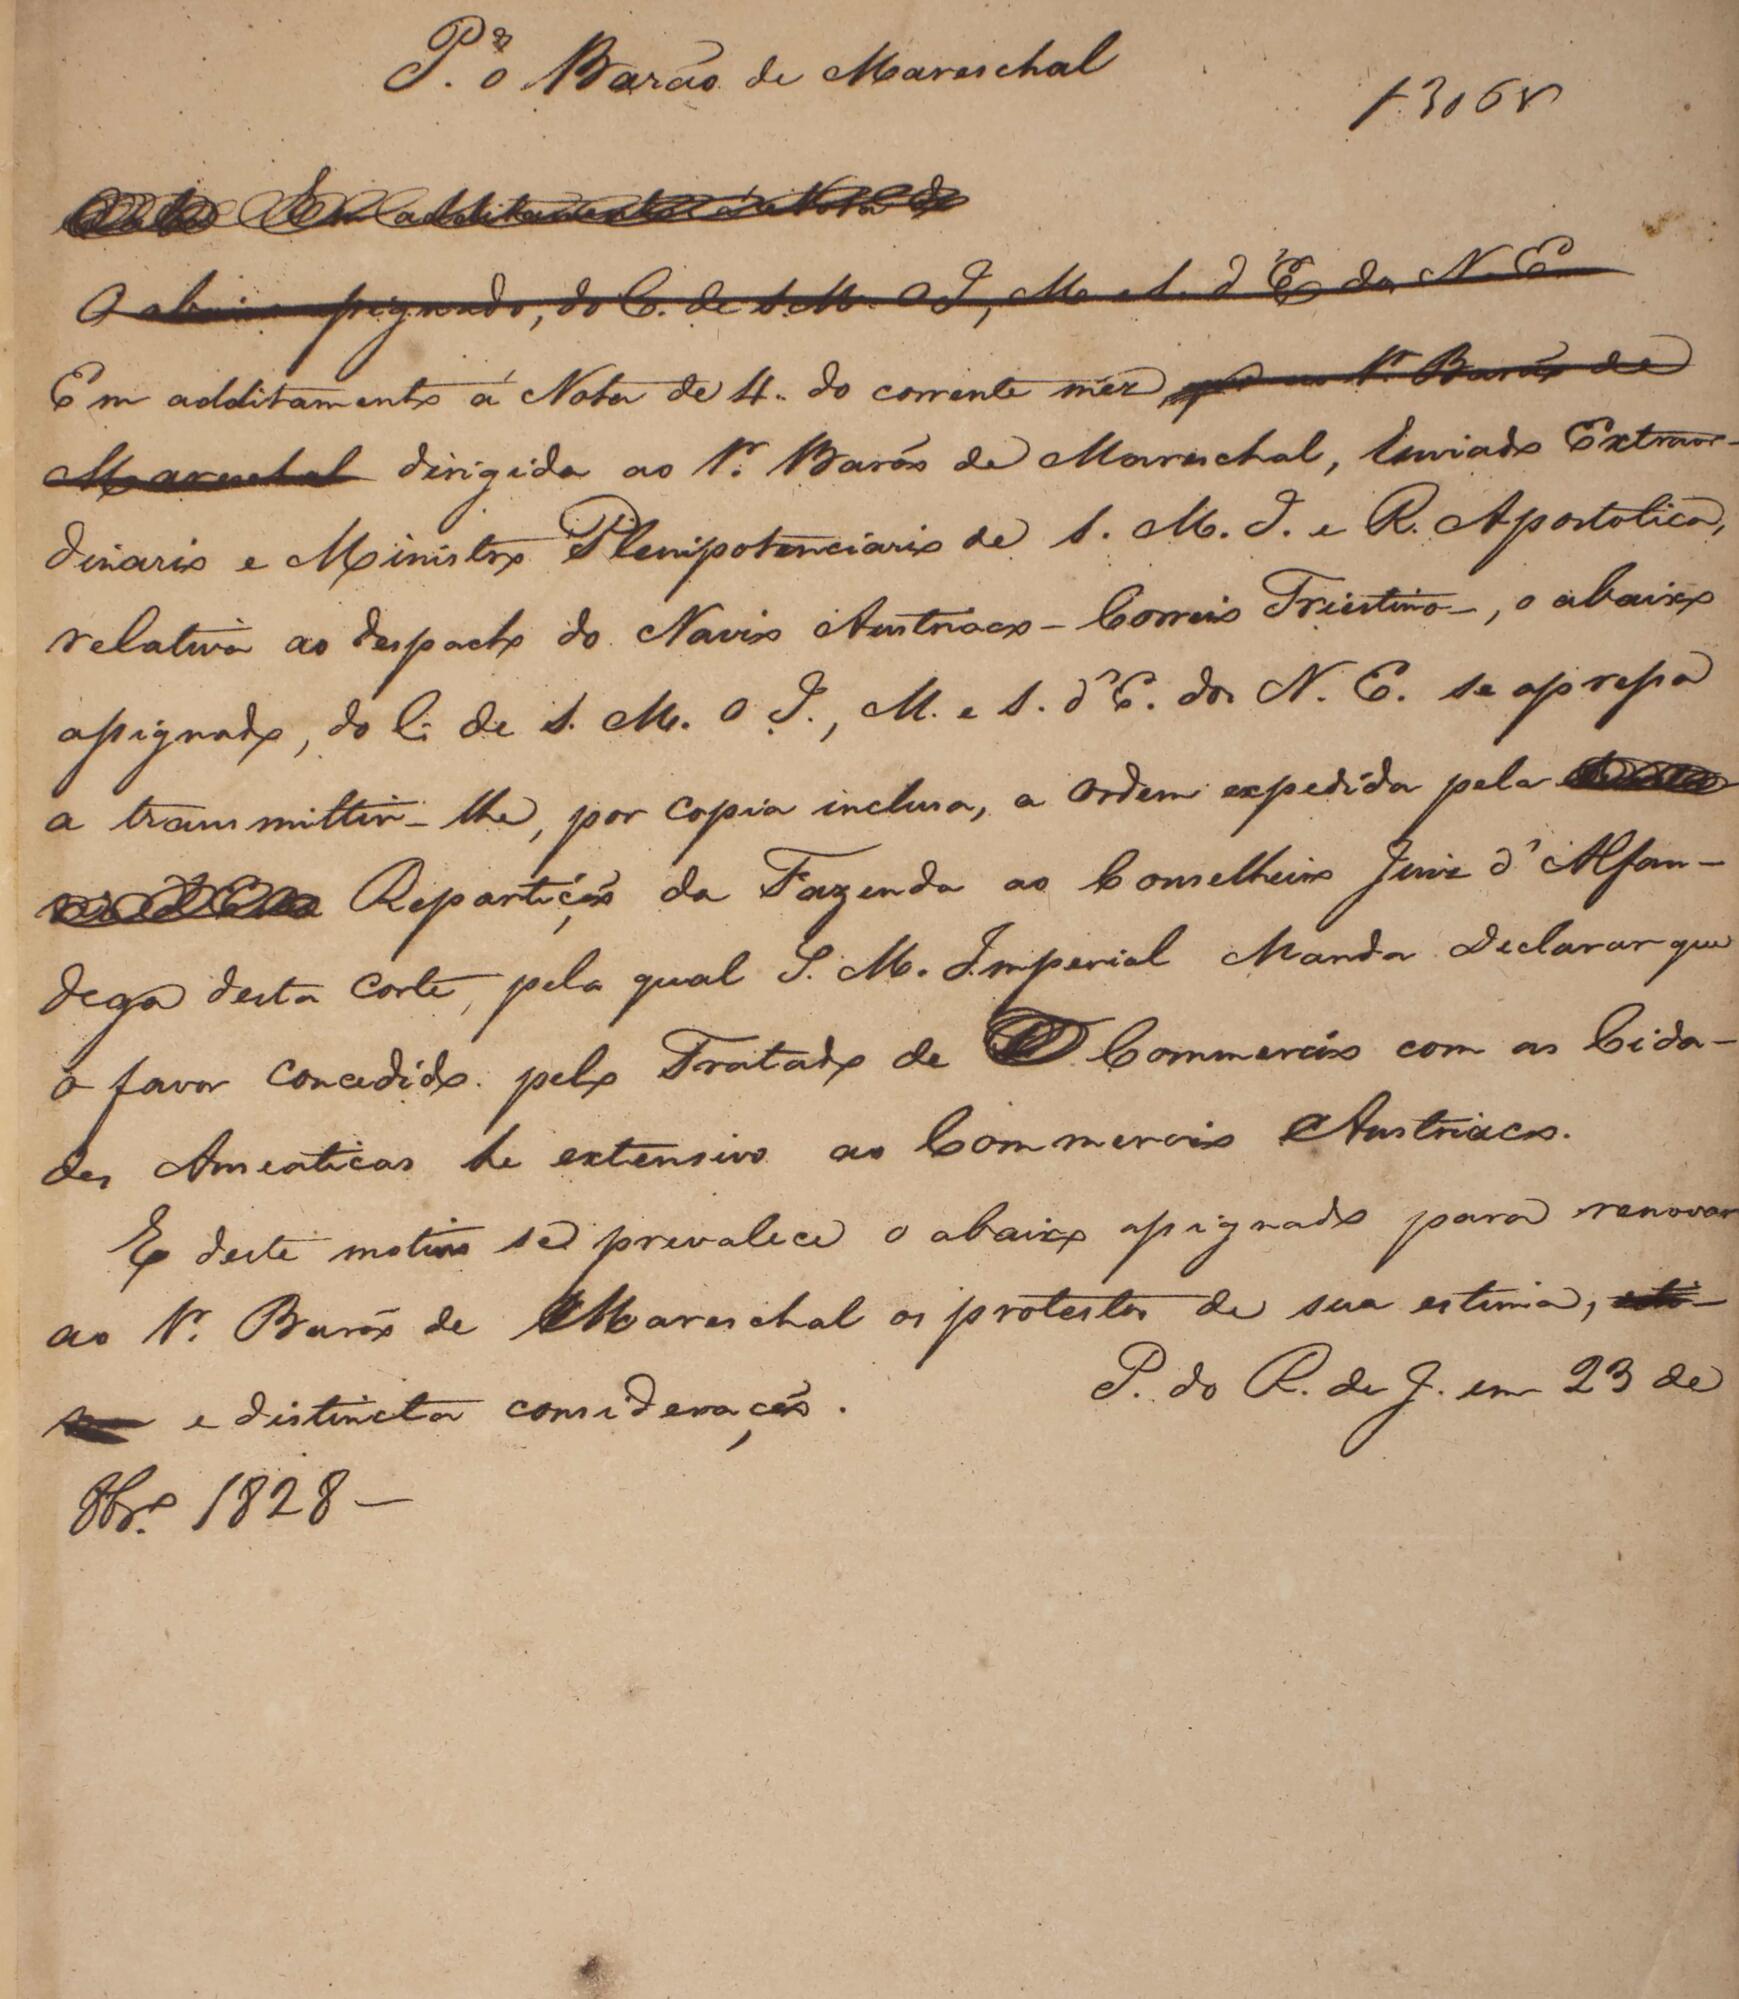 P.ª o Barão de Mareschal
Em additamento á Nota de
O abaixo assignado, do C. de S. M. O I., M. e S. d'E. dos N. E.
Em additamento á Nota de 4. do corrente mez, ao Sr. Barão de
Mareschal dirigida ao Sr. Barão de Mareschal, Enviado Extraor-
dinario e Ministro Plenipotenciario de S. M. I. e R. Apostolica,
relativa ao despacho do Navio Austriaco - Correio Triestino -, o abaixo
assignado, do C. de S. M. O I., M. e S. d'E. dos N. E. se apressa
a transmittir-lhe, por copia inclusa, a ordem expedida pela
Repartição da Fazenda ao Conselheiro Juiz d'Alfan-
dega desta Corte, pela qual S. M. Imperial Manda Declarar que
o favor concedido pelo Tratado de Commercio com as Cida-
des Anseaticas he extensivo ao Commercio Austriaco.
E deste motivo se prevalece o abaixo assignado para renovar
ao Sr. Barão de Mareschal os protestos de sua estima,
e distincta consideração. P. do R. de J. em 23 de
8br.º 1828 -